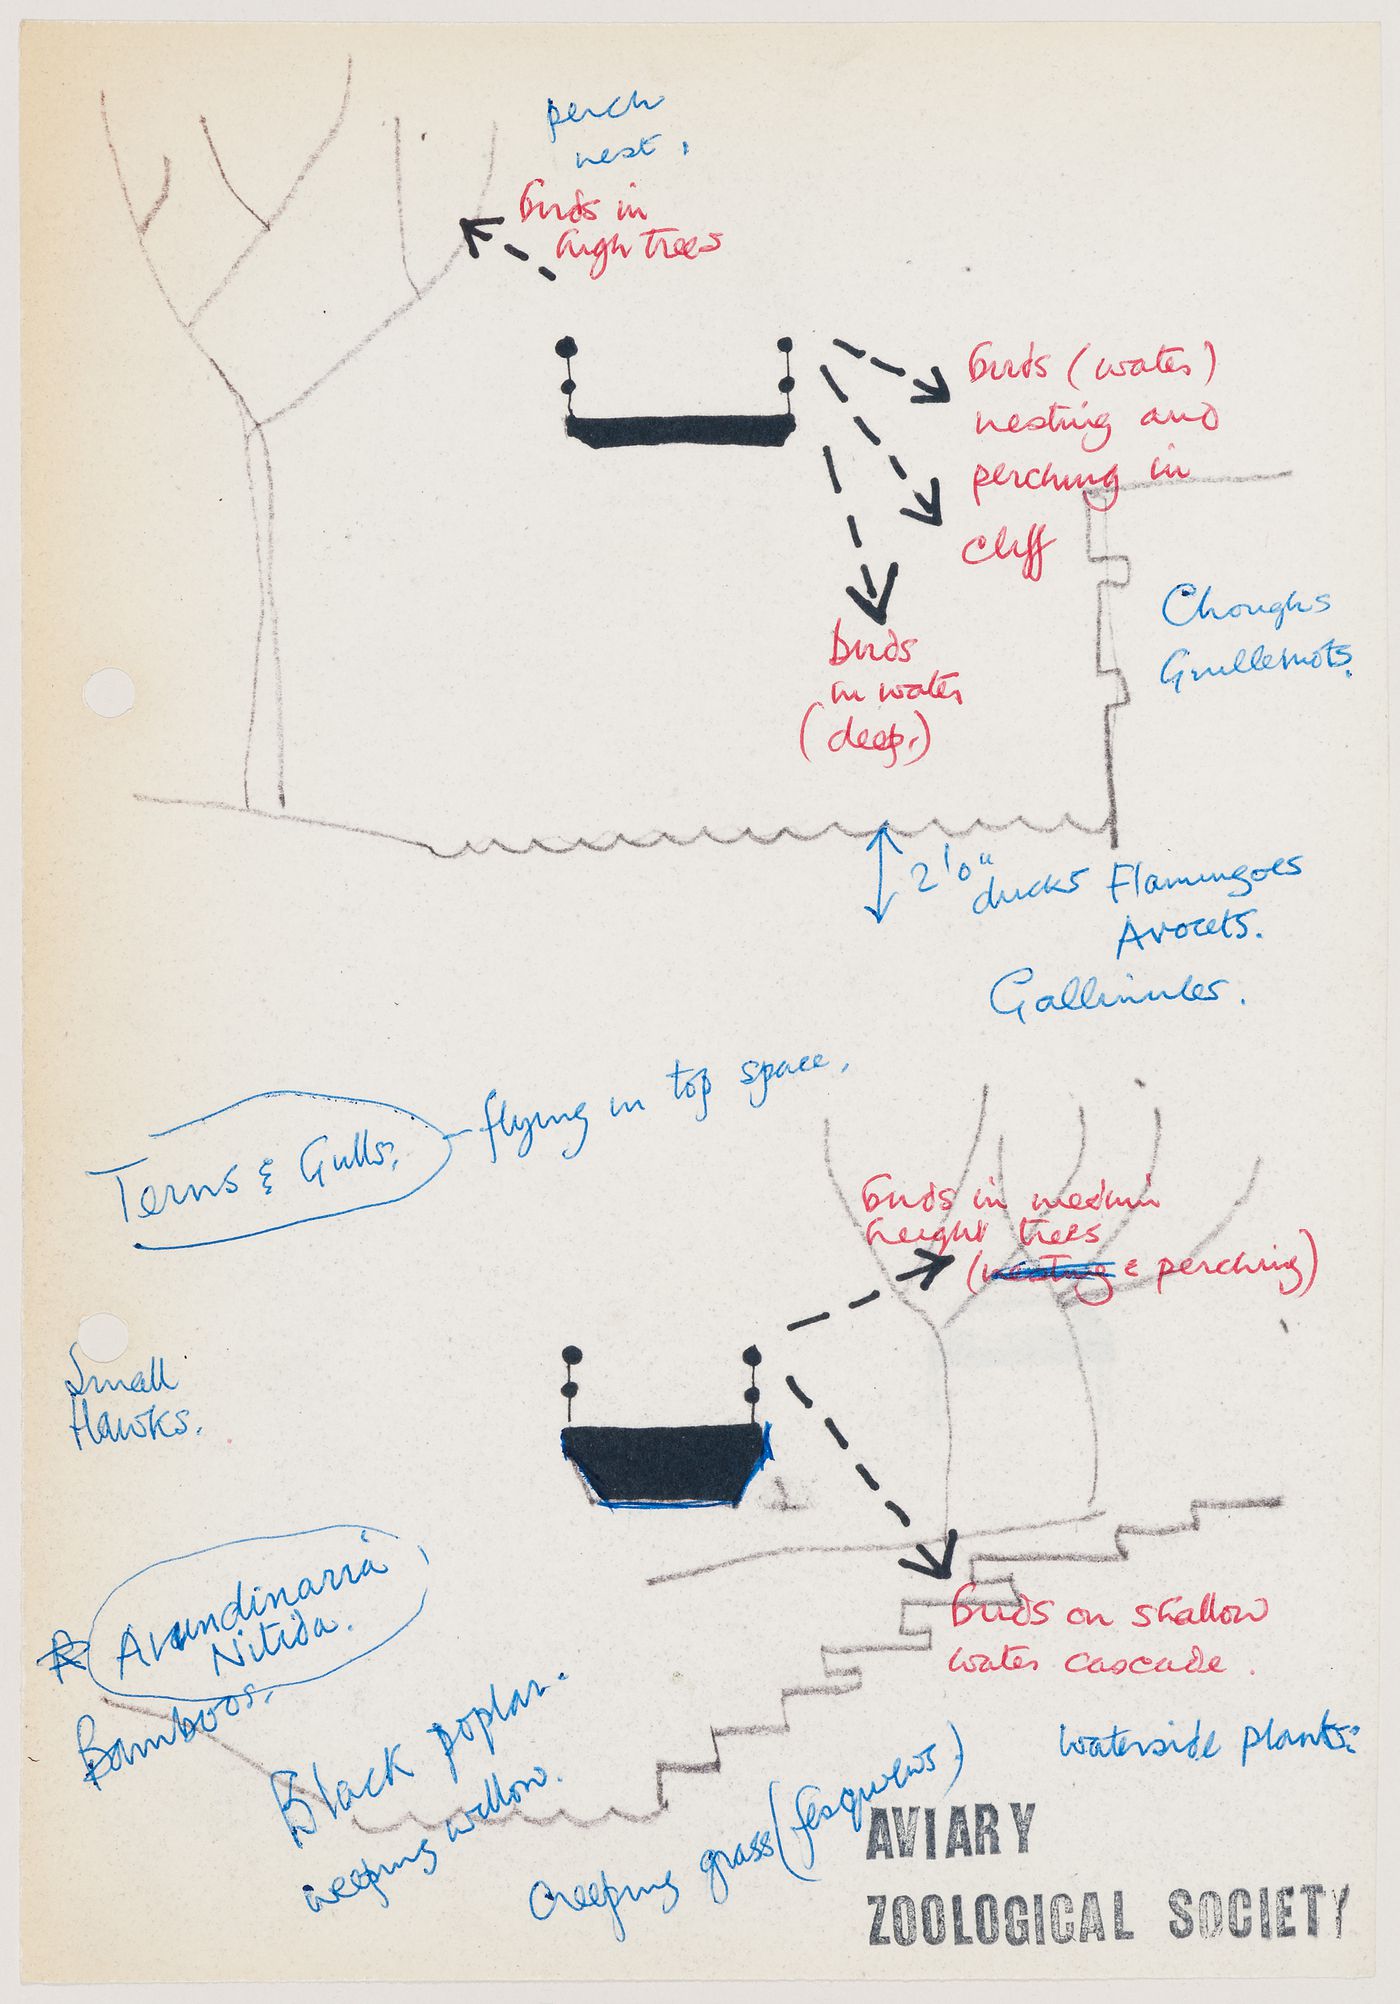 perch
nest.
birds in
high trees
birds (water)
nesting and
perching in
cliff
birds
in water
(deep.)
Choughs
Guillemots.
2'0"
ducks Flamingoes
Avocets.
Gallinules.
Terns & Gulls. flying in top space.
birds in medium
height trees
(nesting & perching)
Small
Hawks.
birds on shallow
water cascade.
Arundinaria
Nitida.
Bamboos.
Black poplar.
weeping willow.
creeping grass
waterside plants.
AVIARY
ZOOLOGICAL SOCIETY